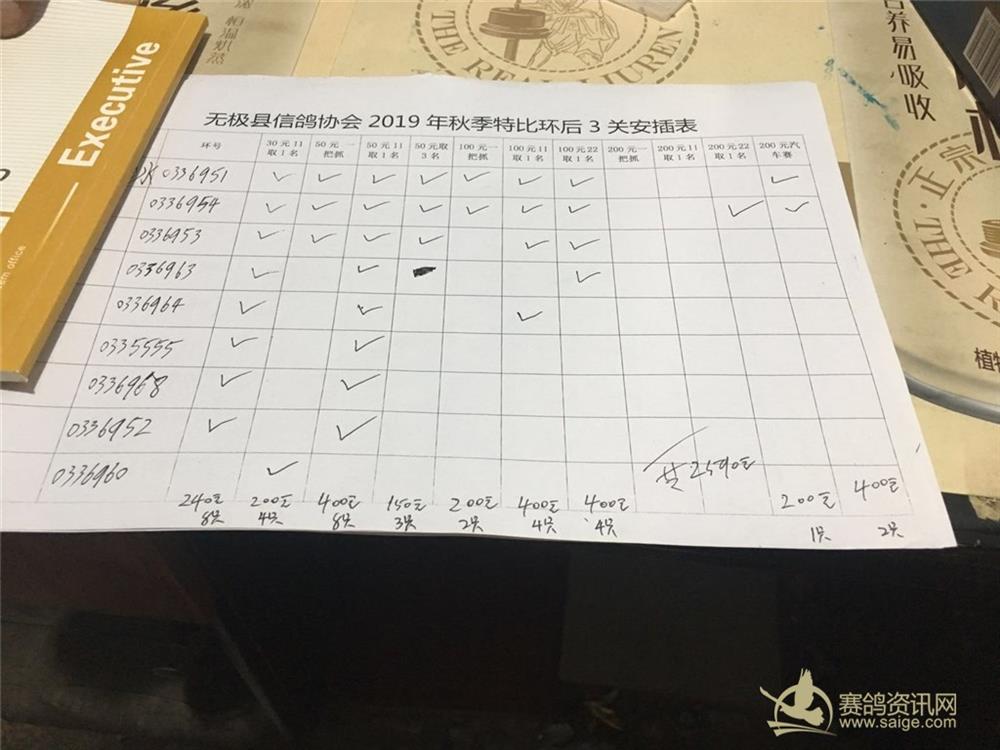 Executive
帕温烘蒸
THE REAL
养易吸收
正宗
THE
植物
无极县信鸽协会 2019 年秋季特比环后 3 关安插表
环号 30元11取1名 50元一把抓 50元11取1名 50元取3名 100元一把抓 100元11取1名 100元22取1名 200元一把抓 200元11取1名 200元22取1名 200元汽车赛
0336951 ✓ ✓ ✓ ✓ ✓ ✓ ✓ ✓
0336954 ✓ ✓ ✓ ✓ ✓ ✓ ✓ ✓ ✓
0336953 ✓ ✓ ✓ ✓ ✓ ✓
0336963 ✓ ✓ ✓
0336964 ✓ ✓ ✓
0335555 ✓ ✓
0336968 ✓ ✓
0336952 ✓ ✓
0336960 ✓
共2590元
240元 200元 400元 150元 200元 400元 400元 200元 400元
8只 4只 8只 3只 2只 4只 4只 1只 2只
赛鸽资讯网
www.saige.com